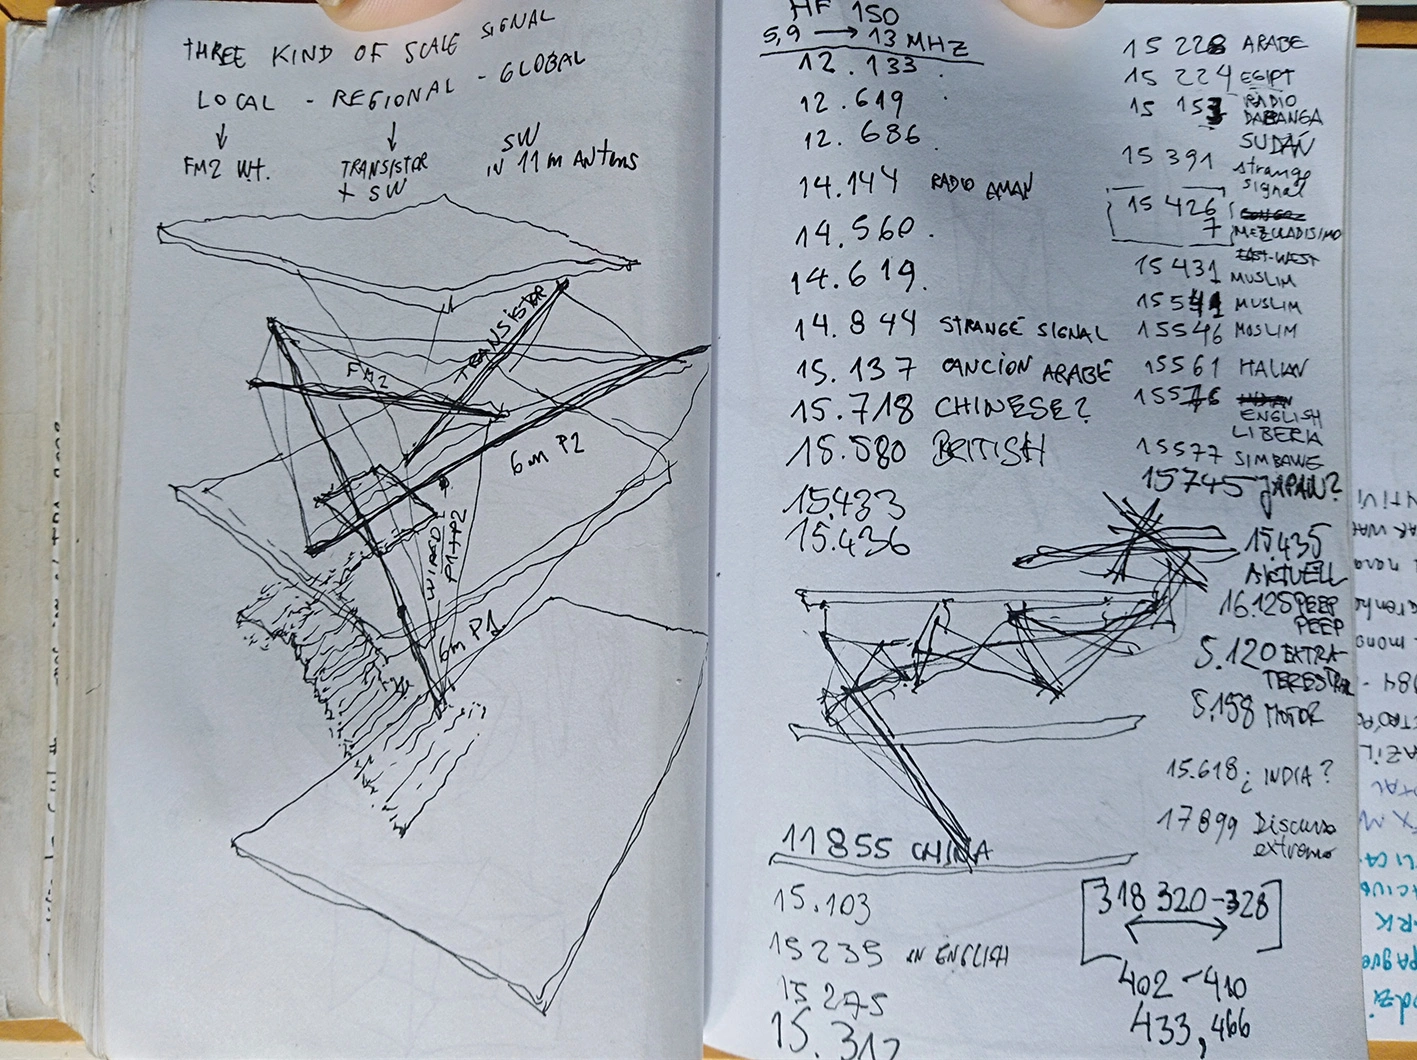 THREE KIND OF SCALE SIGNAL
LOCAL - REGIONAL - GLOBAL
FM2 WT.
TRANSISTOR
+ SW
SW
IN 11 m ANTENS
TRANSISTOR
FM2
6m P2
WIRED
P1+P2
6m P1
HF 150
5,9 → 13 MHZ
12.133
12.619
12.686
14.144 RADIO AMAN
14.560.
14.619.
14.844 STRANGE SIGNAL
15.137 CANCION ARABE
15.718 CHINESE?
15.580 BRITISH
15.433
15.436
11855 CHINA
15.103
15235 IN ENGLISH
15275
15.312
15228 ARABE
15224 EGIPT
15 153 RADIO
DABANGA
SUDÁN
15391 strange
signal
15426
7 MEZCLADISIMO
EAST-WEST
15431 MUSLIM
15541 MUSLIM
15546 MUSLIM
15561 ITALIAN
15576
ENGLISH
LIBERIA
15577 SIMBAWE
15745 JAPAN?
15.435
AKTUELL
16.125 PEEP
PEEP
5.120 EXTRA-
TERESTRAL
5.158 MOTOR
15.618 ¿ INDIA?
17899 Discurso
extremo
[318 320-328]
402-410
433,466